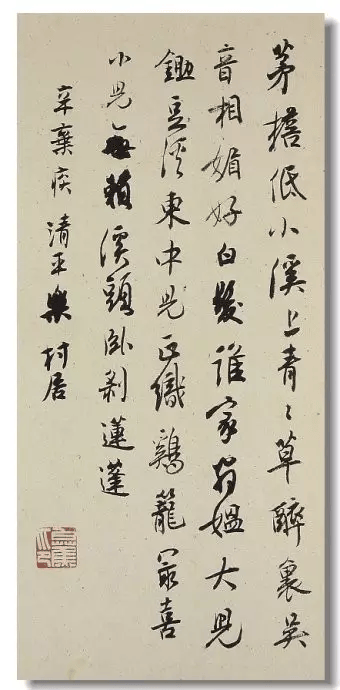 茅檐低小溪上青々草醉裏吳
音相媚好白髮誰家翁媼大兒
鋤豆溪東中兒正織鷄籠最喜
小兒無賴溪頭臥剝蓮蓬
辛棄疾 清平樂 村居